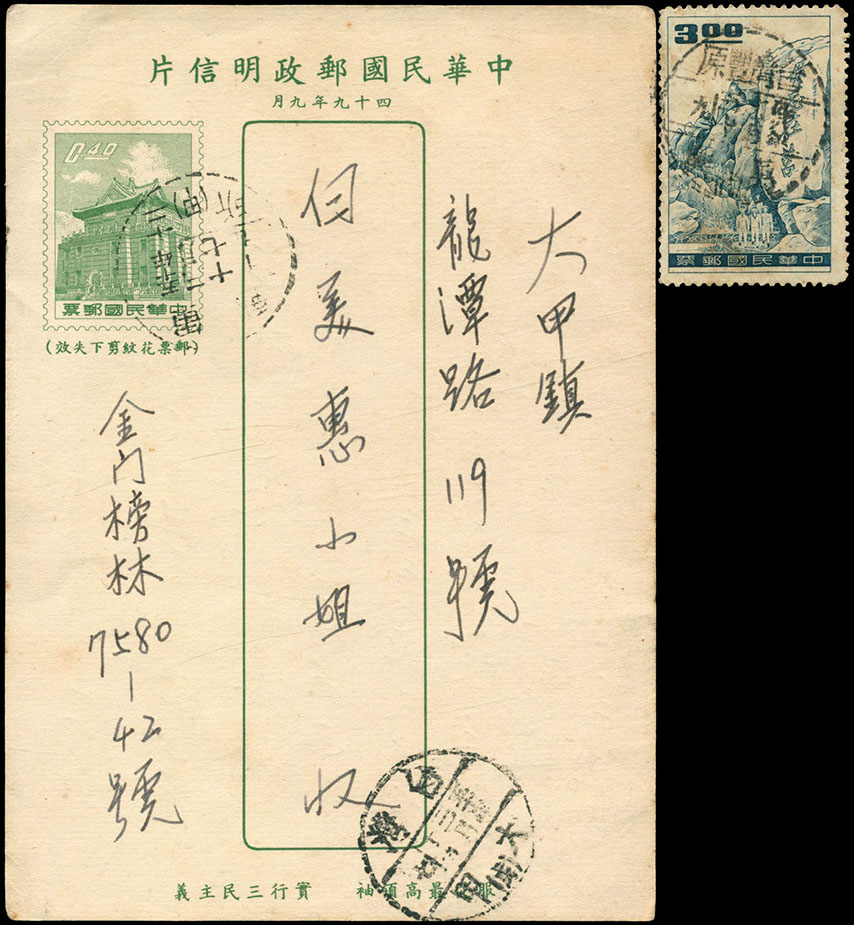 中華民國郵政明信片
四十九年九月
0.40
中華民國郵票
(郵票花紋剪下失效)
大甲鎮
龍潭路119號
白美惠小姐 收
金门榜林7580-42號
實行三民主義
最高領袖
大甲
3.00
中華民國郵票